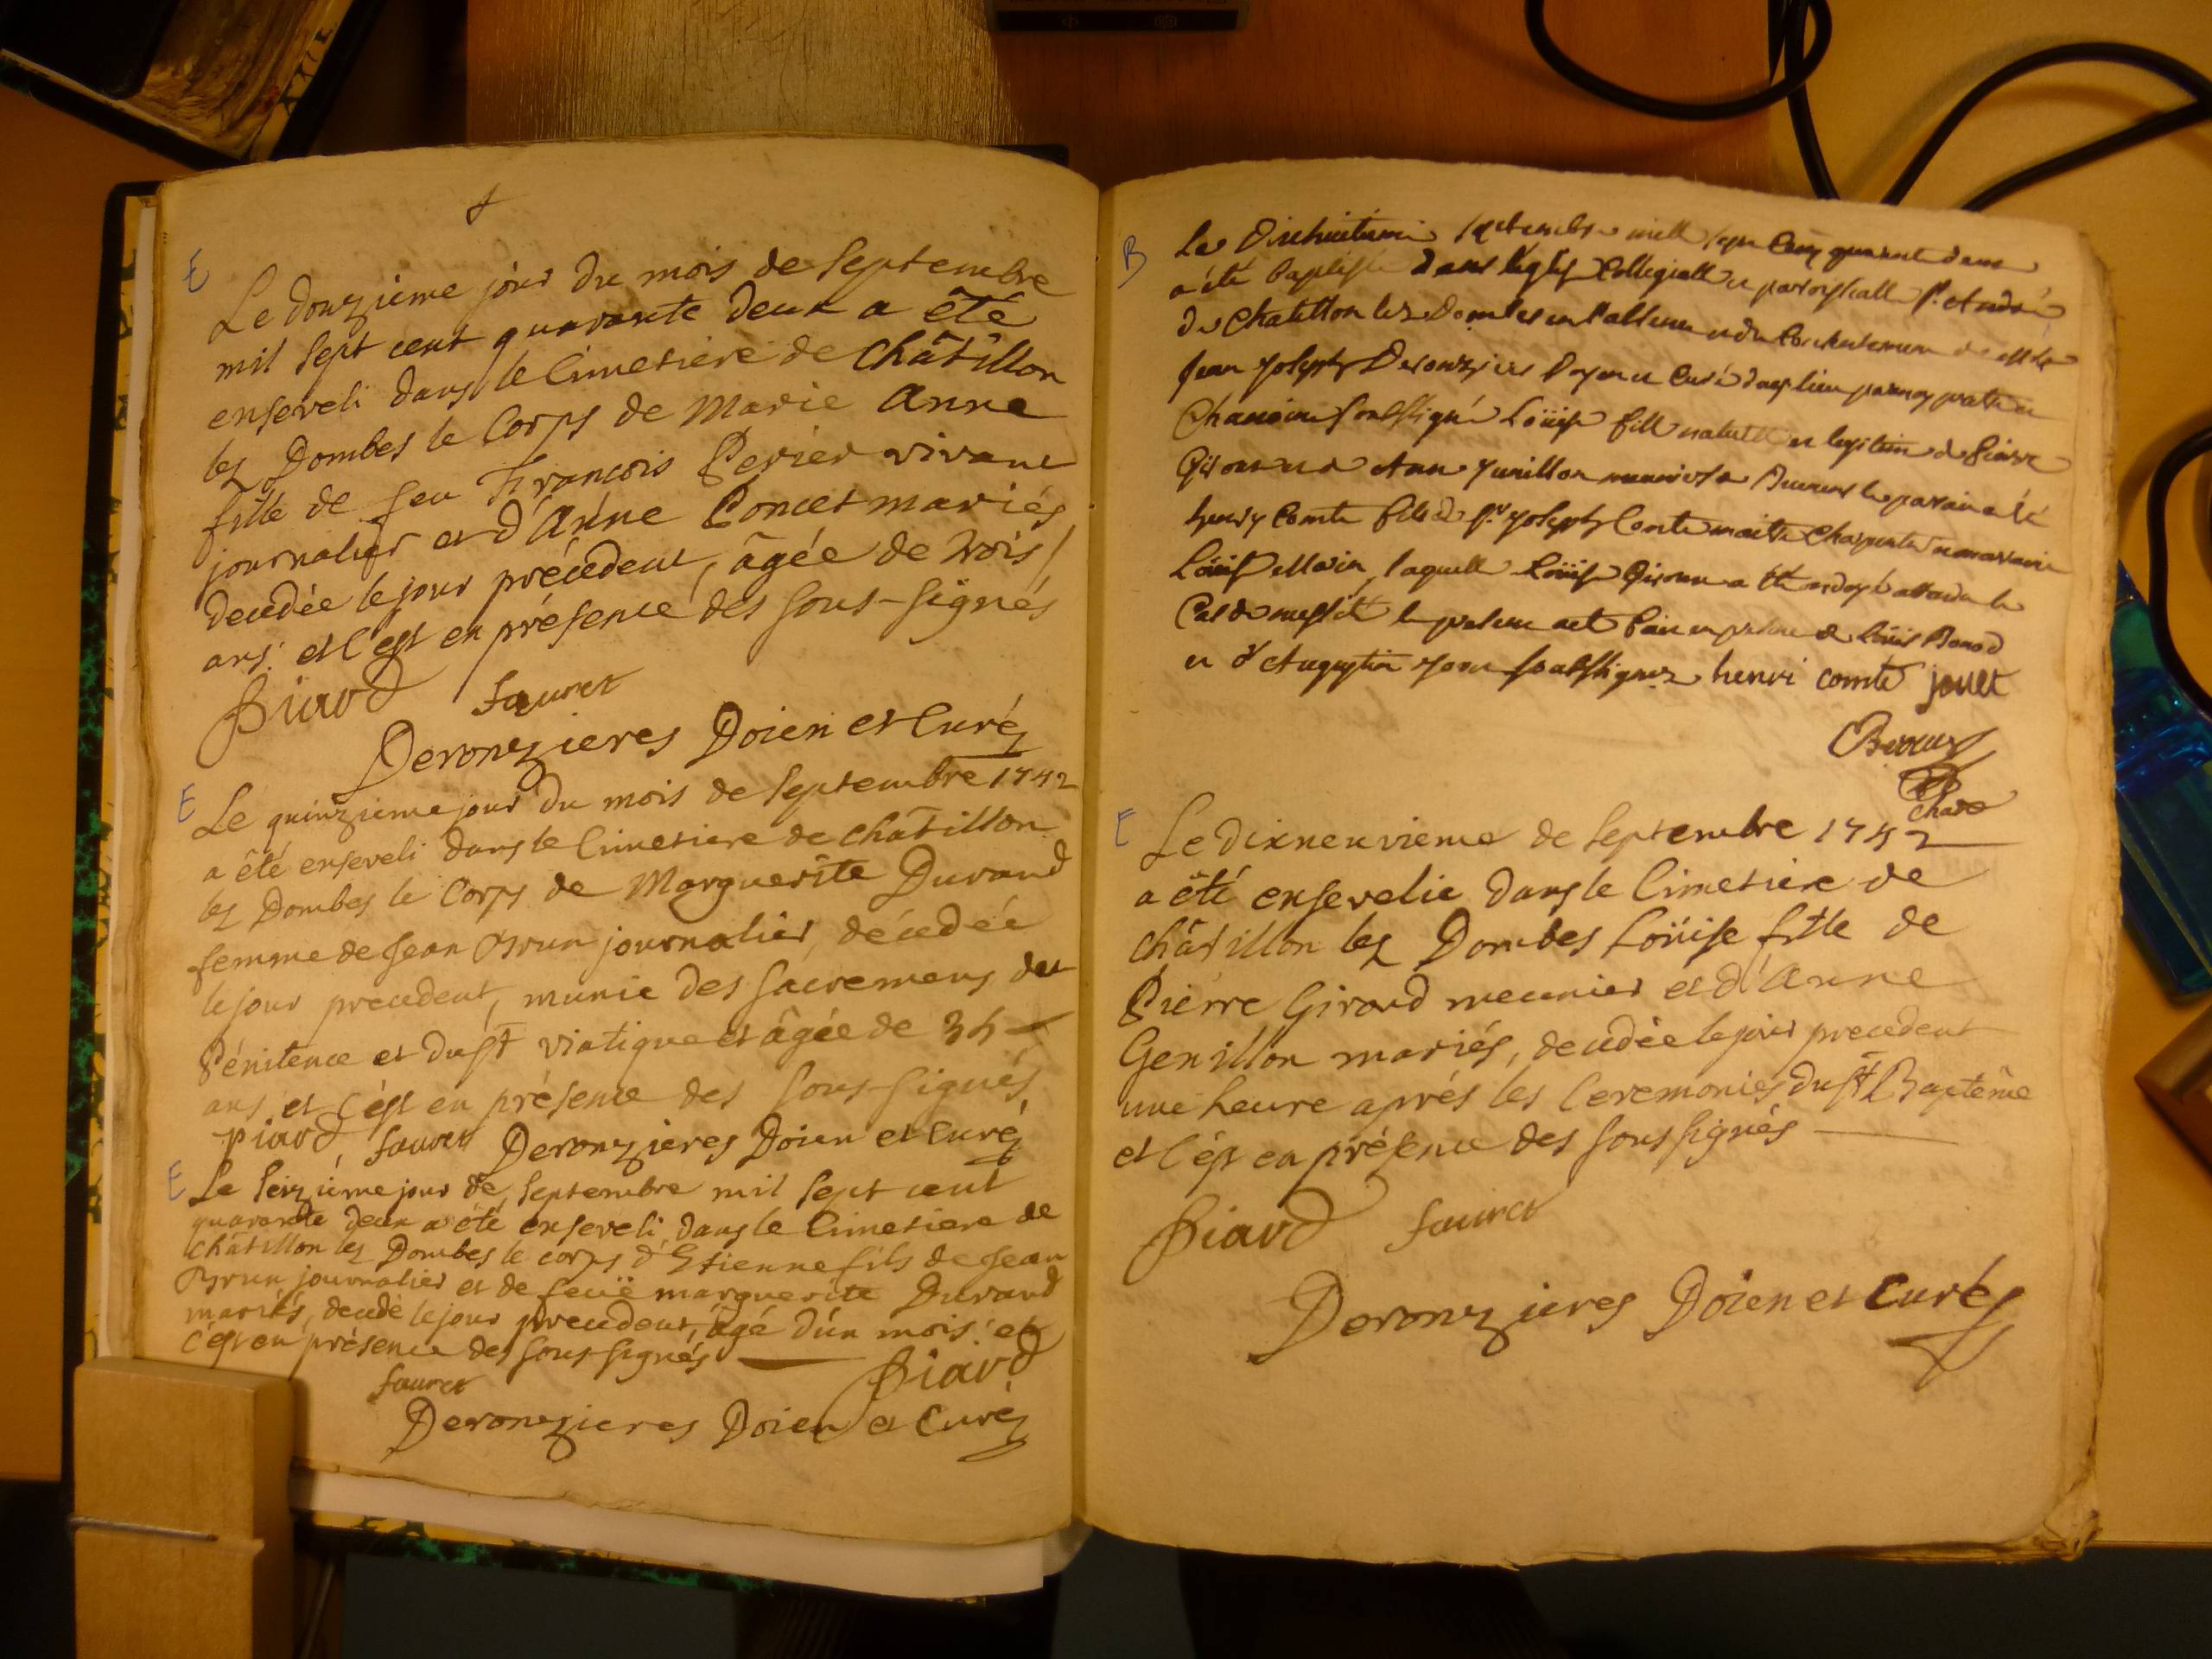 E
Le douzieme jour du mois de Septembre
mil Sept cent quarante deux a êté
enseveli dans le Cimetiere de Châtillon
lez Dombes le Corps de Marie Anne
fille de feu François Perier vivant
journalier et d'Anne Poncet mariés
decedée le jour précedent, âgée de trois
ans: et c'est en présence des Sous-signés
Piard Sauret
Deronzieres Doien et Curé
E
Le quinzieme jour du mois de Septembre 1742
a êté enseveli dans le Cimetiere de Châtillon
lez Dombes le Corps de Marguerite Durand
femme de Jean Brun journalier, décedée
le jour precedent, munie des Sacremens de
Pénitence et du St viatique et âgée de
ans et c'est en présence des Sous-signés
Piard Sauret Deronzieres Doien et Curé
E
Le Seizieme jour de Septembre mil Sept cent
quarante deux a êté enseveli dans le Cimetiere de
Châtillon lez Dombes le corps d'Etienne fils de Jean
Brun journalier et de feuë marguerite Durand
mariés, decedé le jour precedent, âgé d'un mois: et
c'est en présence des Sous-signés
Piard
Sauret
Deronzieres Doien et Curé
B
Le Dixhuitieme Septembre mill sept cent quarant deux
a été Baptisée dans leglise Collegialle et paroissialle St. André
de Chatillon les Dombes en l'absence et du Consentement de
Jean Joseph Deronzieres Doyen et Curé
Chanoine soussigné Loüise fille naturelle et legitime de Pierre
Girou et Anne Jenillon le parain a été
henry Comte fils de Sr Joseph Comte maitre Charpentier et maraine
Loüise laquelle Loüise Girou a été ondoyé attendu le
Cas de necessité le present acte fait en presence de Loüis
et d'Augustin soussignez henri comte jouet
E
Le dixneuvieme de Septembre 1742
a êté ensevelie dans le Cimetiere de
Châtillon lez Dombes Loüise fille de
Pierre Giroud meunier et d'Anne
Genillon mariés, decedée le jour precedent
une heure aprés les Ceremonies du St Baptême
et c'est en présence des Sous signés
Piard Sauret
Deronzieres Doien et Curé